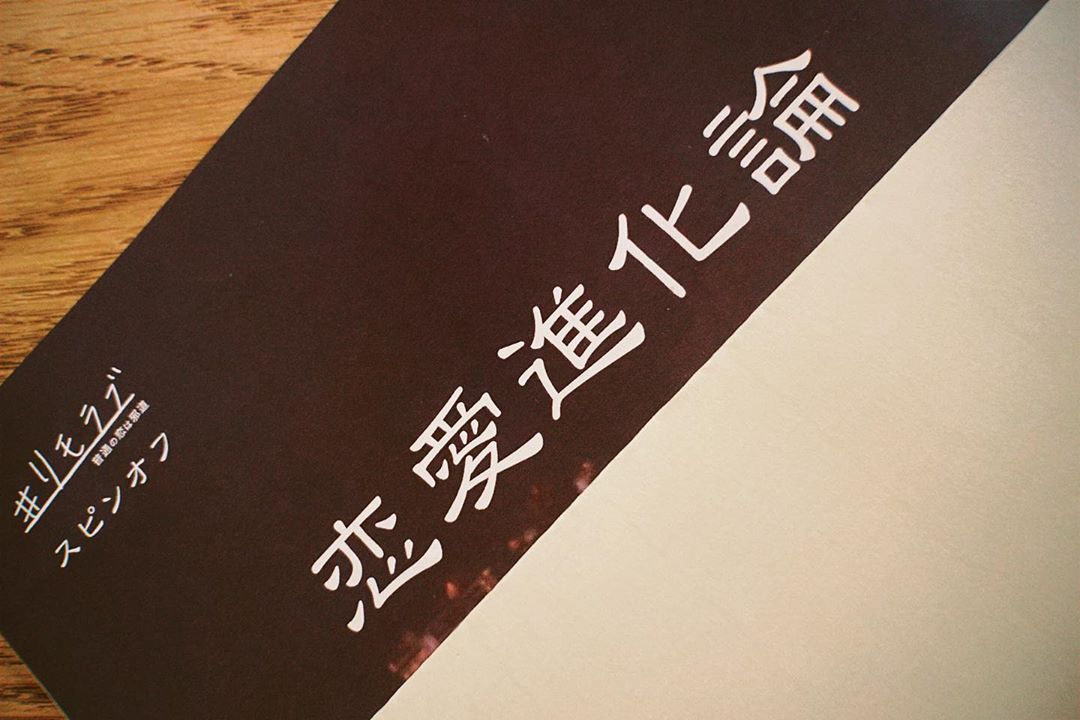 #リモラブ
普通の恋は邪道
スピンオフ
恋愛進化論